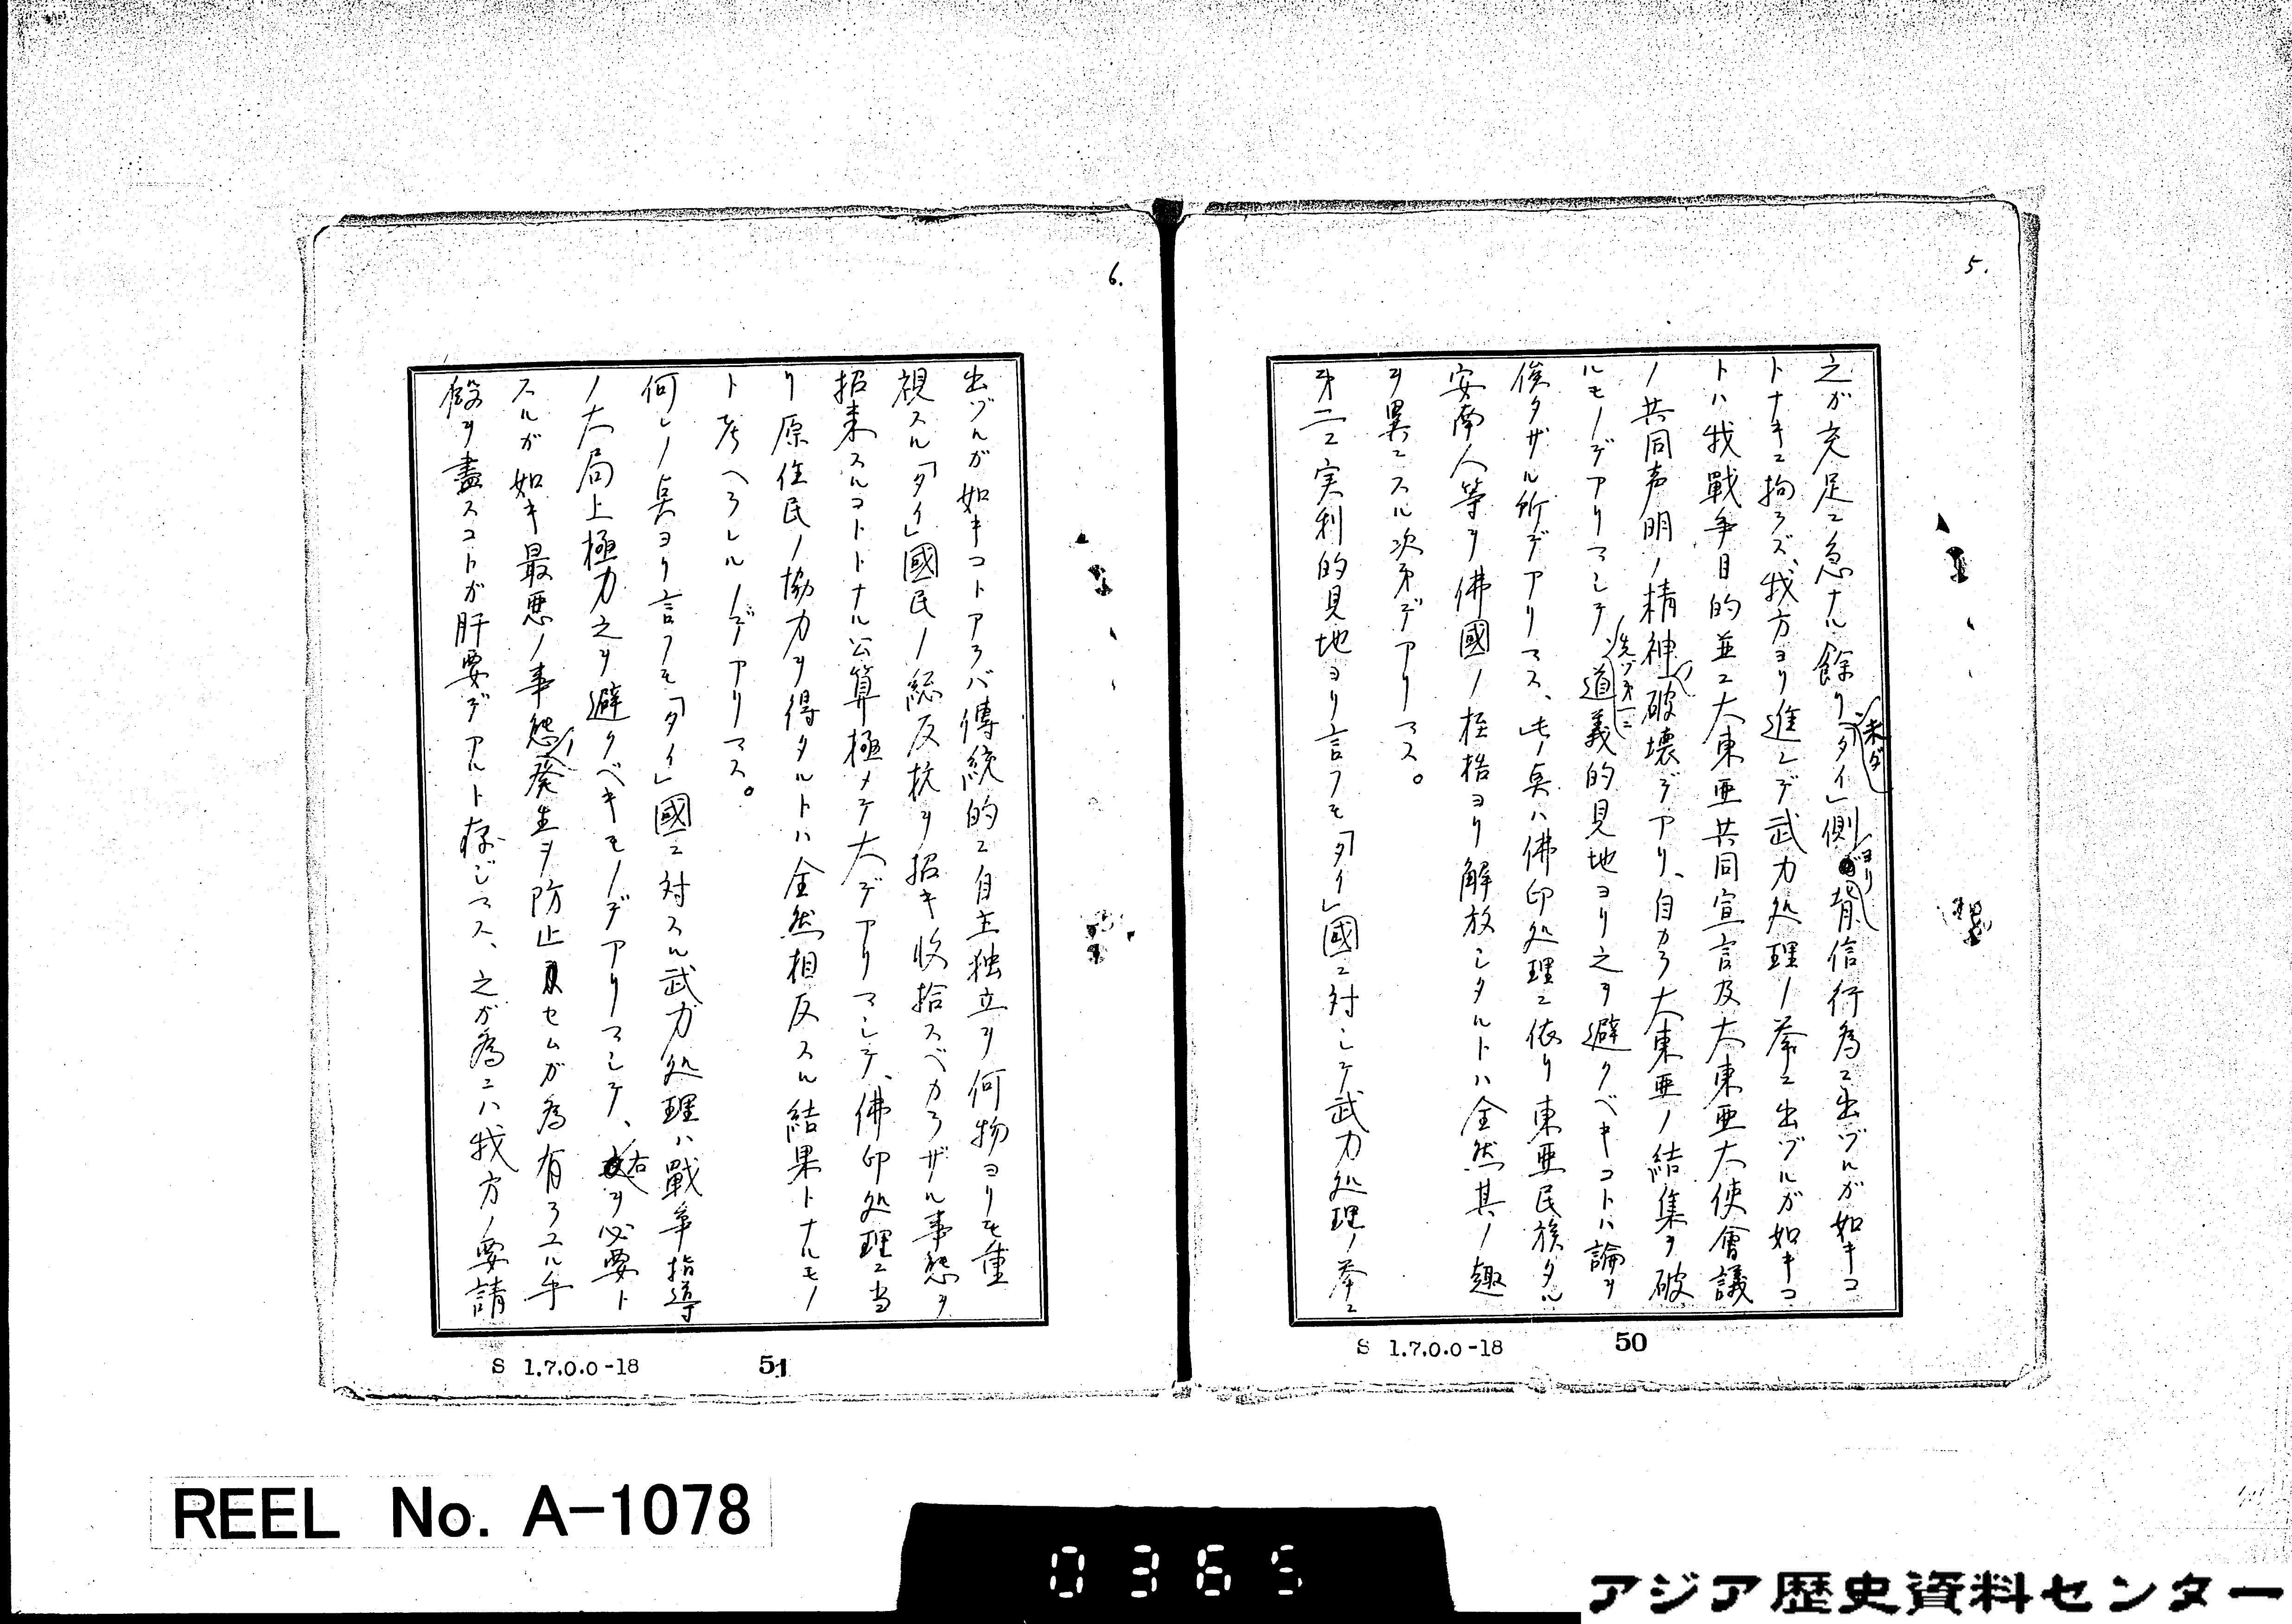 5.
之が充足ニ急ナル餘リ未ダ「タイ」側ヨリ背信行為ニ出ヅルガ如キコ
トナキニ拘ラズ、我方ヨリ進ンデ武力処理ノ挙ニ出ヅルガ如キコ
トハ我戰争目的並ニ大東亜共同宣言及大東亜大使會議
ノ共同声明ノ精神ノ破壊デアリ、自カラ大東亜ノ結集ヲ破
ルモノデアリマシテ先ヅ第一ニ道義的見地ヨリ之ヲ避クベキコトハ論ヲ
俟タザル所デアリマス、此ノ奌ハ佛印処理ニ依リ東亜民族タル
安南人等ヲ佛國ノ桎梏ヨリ解放シタルトハ全然其ノ趣
ヲ異ニスル次第デアリマス。
第二ニ実利的見地ヨリ言フモ「タイ」國ニ対シテ武力処理ノ挙ニ
S 1.7.0.0-18
50
6.
出ヅルガ如キコトアラバ傳統的ニ自主独立ヲ何物ヨリモ重
視スル「タイ」國民ノ総反抗ヲ招キ收拾スベカラザル事態ヲ
招来スルコトトナル公算極メテ大デアリマシテ、佛印処理ニ当
リ原住民ノ協力ヲ得タルトハ全然相反スル結果トナルモノ
ト考ヘラレルノデアリマス。
何レノ奌ヨリ言フモ「タイ」國ニ対スル武力処理ハ戰争指導
ノ大局上極力之ヲ避クベキモノデアリマシテ、右ヲ必要ト
スルが如キ最悪ノ事態ノ発生ヲ防止セムガ為有ラユル手
段ヲ盡スコトガ肝要デアルト存ジマス、之ガ為ニハ我方ノ要請
S 1.7.0.0-18
51
REEL No. A-1078
0365
アジア歴史資料センター